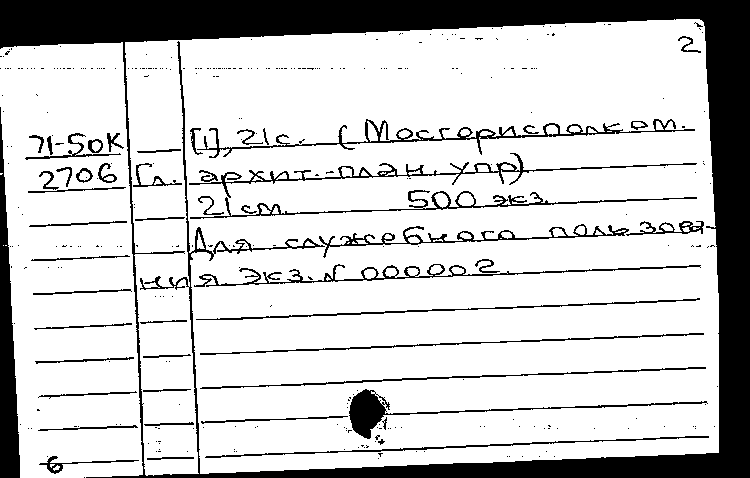 2
71-50К [1], 21 с. (Мосгорисполком.
2706 Гл. архит.-план. упр)
21 см. 500 экз.
Для служебного пользова-
ния. Экз. N 000002.
6